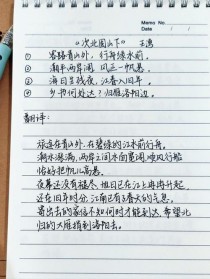 Memo No.
《次北固山下》 王湾
① 客路青山外，行舟绿水前。
② 潮平两岸阔，风正一帆悬。
③ 海日生残夜，江春入旧年。
④ 乡书何处达？归雁洛阳边。
翻译：
旅途在青山外，在碧绿的江水前行舟。
潮水涨满，两岸之间水面宽阔，顺风行船
恰好把帆儿高悬。
夜幕还没有褪尽，旭日已在江上冉冉升起，
还在旧年时分，江南已有了春天的气息。
寄出去的家信不知何时才能到达，希望北
归的大雁捎到洛阳去。